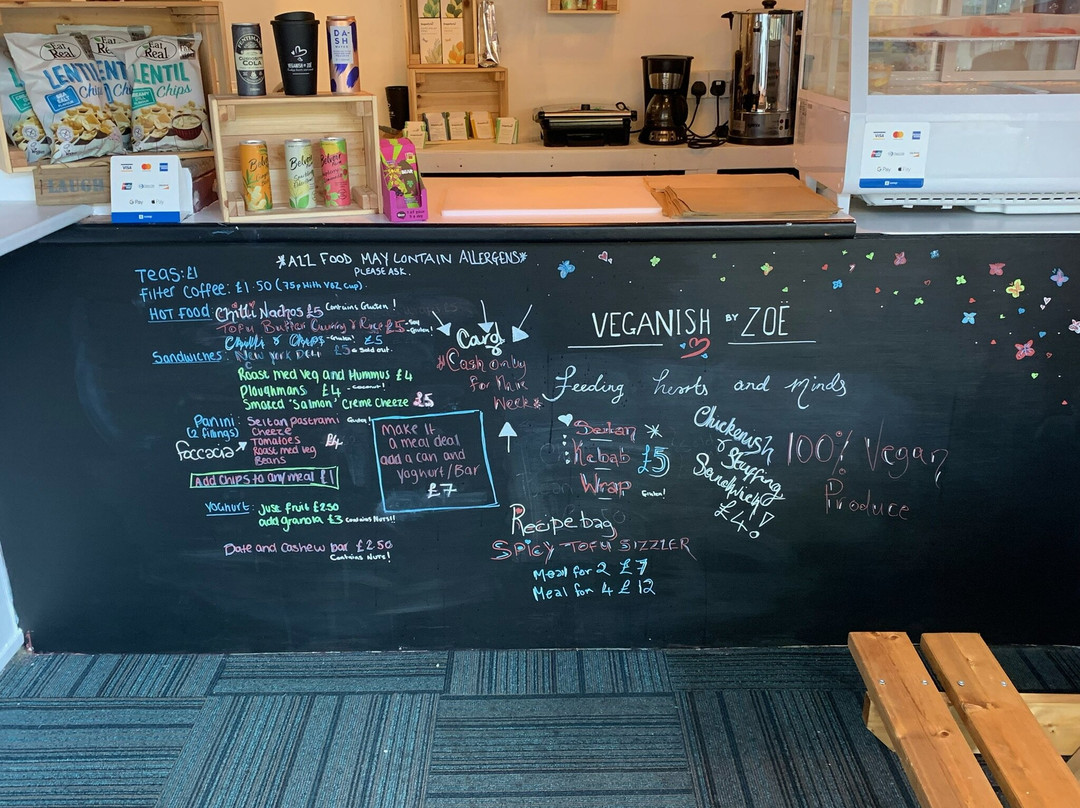 Eat Real
LENTIL
Chips
SEA SALT
Eat Real
LENTIL
Chips
CURIOSITY COLA
VEGANISH BY ZOË
DASH
LAUGH
VISA
G Pay Pay
VISA
G Pay Pay
*ALL FOOD MAY CONTAIN ALLERGENS*
PLEASE ASK.
TEAS: £1
Filter Coffee: £1.50 (75p With VBZ Cup).
HOT FOOD: Chilli Nachos £5 Contains Gluten!
TOFU Butter Curry & Rice £5 - Soy - Gluten!
Chilli & Chips - Gluten! £5
Sandwiches: New York Deli £5 Sold out.
Roast Med Veg and Hummus £4
Ploughmans £4 - Coconut!
Smoked 'Salmon' Creme Cheeze £5
Panini: Seitan Pastrami Gluten!
(2 fillings) Cheeze
Foccacia Tomatoes £4
Roast Med Veg
Beans
Add Chips to any meal £1
Yoghurt: Just Fruit £2.50
add Granola £3 Contains Nuts!!
Date and Cashew bar £2.50
Contains Nuts!
Make it
a meal deal
add a can and
Yoghurt/Bar
£7
Card
*Cash only
for this
Week*
VEGANISH BY ZOË
Feeding hearts and minds
Seitan *
Kebab £5
Wrap Gluten!
Chickenish
& Stuffing
Sandwich
£4!!
100% Vegan
Produce
Recipe bag
SPICY TOFU SIZZLER
Meal for 2 £7
Meal for 4 £12